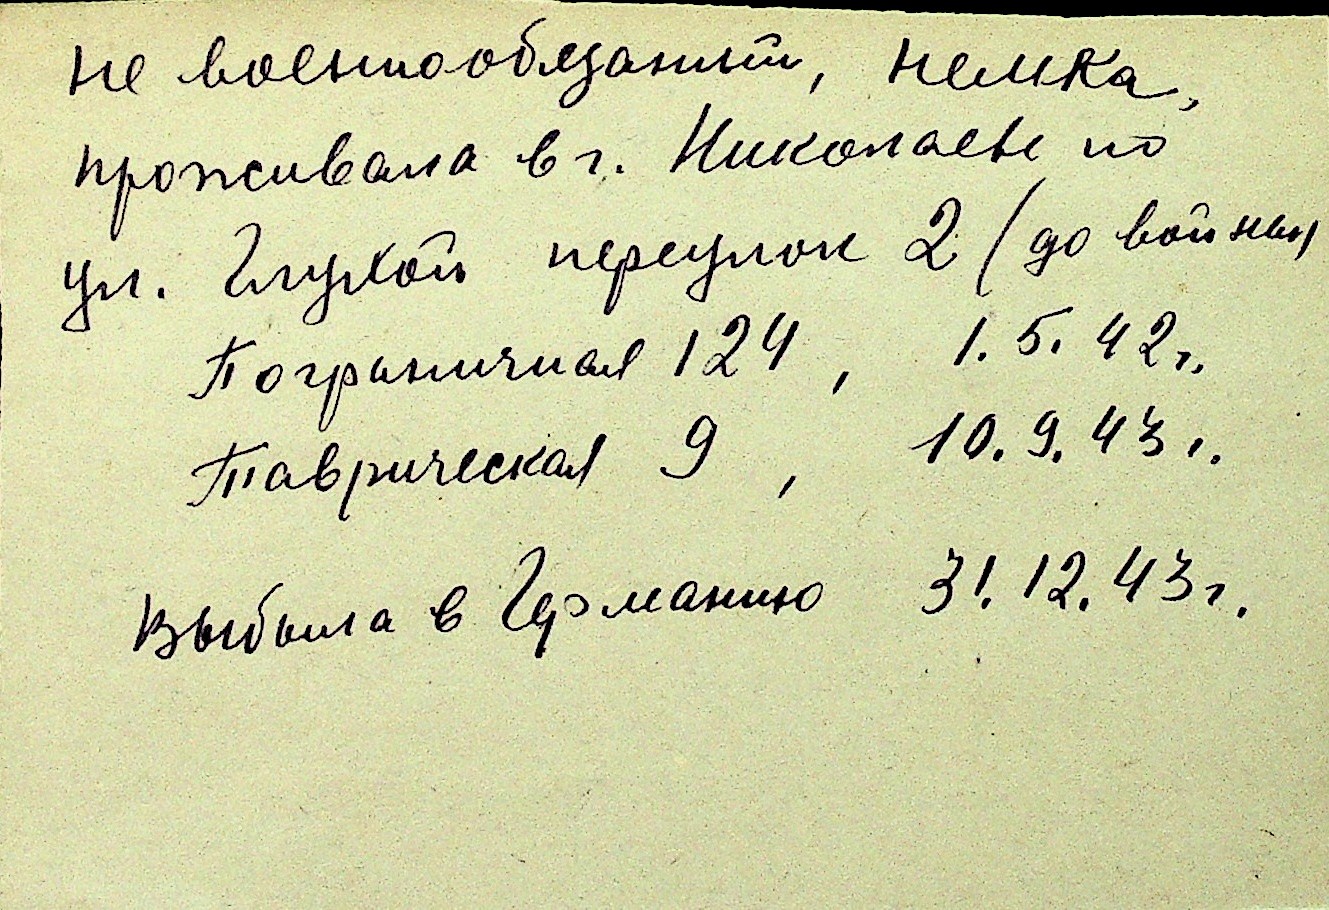 не военнообязаный, немка,
проживала в г. Николаеве по
ул. Глухой переулок 2 (до войны)
Пограничная 124, 1.5.42г.
Таврическая 9, 10.9.43г.
Выбыла в Германию 31.12.43г.